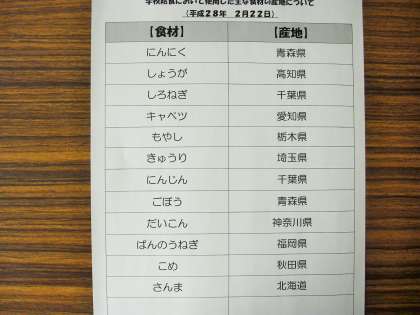 学校給食において使用した主な食材の産地について
（平成２８年　２月２２日）
【食材】　【産地】
にんにく　青森県
しょうが　高知県
しろねぎ　千葉県
キャベツ　愛知県
もやし　栃木県
きゅうり　埼玉県
にんじん　千葉県
ごぼう　青森県
だいこん　神奈川県
ばんのうねぎ　福岡県
こめ　秋田県
さんま　北海道